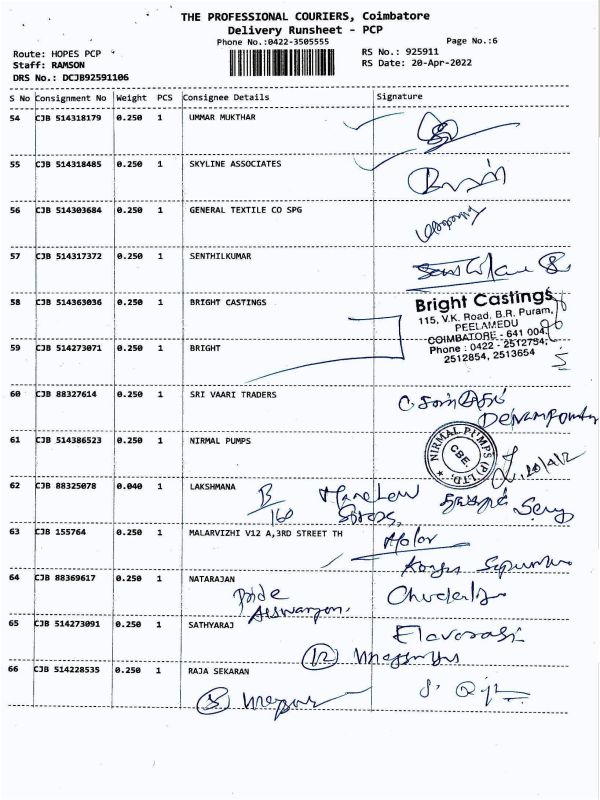 THE PROFESSIONAL COURIERS, Coimbatore
Delivery Runsheet - PCP
Phone No.:0422-3505555
Page No.:6
Route: HOPES PCP
RS No.: 925911
Staff: RAMSON
RS Date: 20-Apr-2022
DRS No.: DCJB92591106
S No Consignment No Weight PCS Consignee Details Signature
54 CJB 514318179 0.250 1 UMMAR MUKTHAR
55 CJB 514318485 0.250 1 SKYLINE ASSOCIATES
56 CJB 514303684 0.250 1 GENERAL TEXTILE CO SPG
57 CJB 514317372 0.250 1 SENTHILKUMAR
58 CJB 514363036 0.250 1 BRIGHT CASTINGS
Bright Castings
115, V.K. Road, B.R. Puram,
PEELAMEDU
COIMBATORE - 641 004.
Phone : 0422 - 2512754,
2512854, 2513654
59 CJB 514273071 0.250 1 BRIGHT
60 CJB 88327614 0.250 1 SRI VAARI TRADERS
61 CJB 514386523 0.250 1 NIRMAL PUMPS
NIRMAL PUMPS (P) LTD.
CBE.
62 CJB 88325078 0.040 1 LAKSHMANA
B
160
63 CJB 155764 0.250 1 MALARVIZHI V12 A,3RD STREET TH
64 CJB 88369617 0.250 1 NATARAJAN
65 CJB 514273091 0.250 1 SATHYARAJ
12
66 CJB 514228535 0.250 1 RAJA SEKARAN